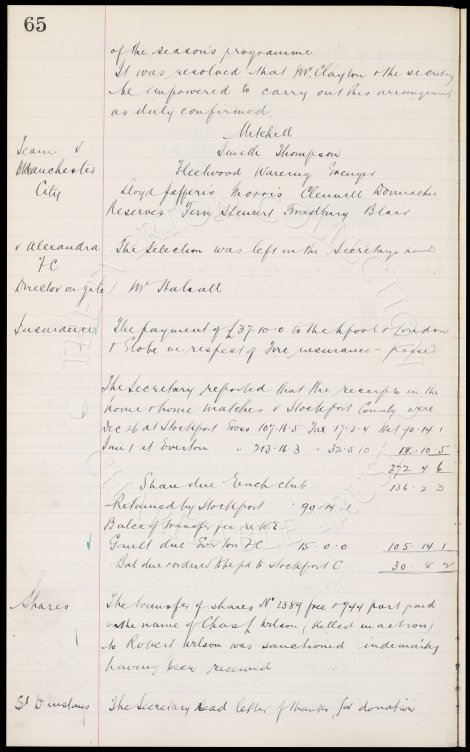 65
of the season's programme
It was resolved that Mr Clayton & the secretary
be empowered to carry out this arrangement
as duly confirmed
Mitchell
Team v
Smith Thompson
Manchester
Fleetwood Wareing Grenyer
City
Lloyd Jefferis Morris Clennell Donnachie
Reserves Fern Stewart Bradbury Blair
v Alexandra
The Selection was left in the Secretarys hands
FC
Director on gate Mr Halsall
Insurance
The payment of £37-10-0 to the Lpool & London
& Globe in respect of Fire insurance - passed
The Secretary reported that the receipts in the
home & home matches v Stockport County were
Dec 26 at Stockport Gross 107.16.5 Tax 17.2.4 Net 90.14.1
Jan 1 at Everton " 213.16.3 " 32.5.10 181.10.5
272 4 6
Share due Each club
136.2.3
Retained by Stockport 90-14-1
Balce of transfer fee re
Gault due Everton FC 15.0.0 105.14 1
Bal due & ordered to be pd to Stockport C 30.8 2
Shares
The transfer of shares No 1389 free & 744 part paid
in the name of Chas J Wilson, (killed in action)
to Robert Wilson was sanctioned indemnity
having been received
St Dunstans
The Secretary read letter of thanks for donation
THE EVERTON COLLECTION
CHARITABLE TRUST